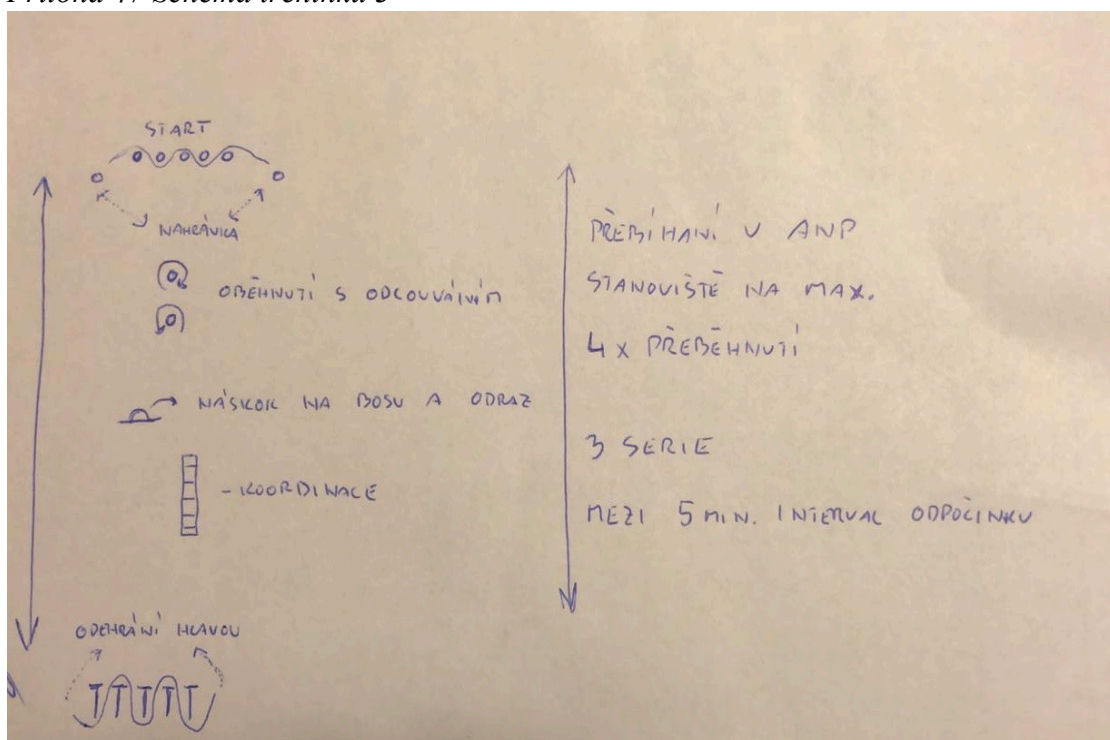 START
NAHRÁVKA
OBĚHNUTÍ S ODCOUVÁNÍM
NÁSKOK NA BOSU A ODRAZ
- KOORDINACE
ODEHRÁNÍ HLAVOU
PŘEBÍHANÍ V ANP
STANOVIŠTĚ NA MAX.
4 X PŘEBĚHNUTÍ
3 SERIE
MEZI 5 MIN. INTERVAL ODPOČINKU